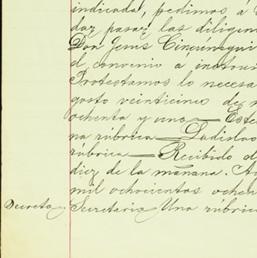 indicada, pedimos á
dar pasar las diligen
Don Jesus
el convenio á
Protestamos lo necesa
gosto veinticinco de m
ochenta y uno — Este
na rúbrica — Ladislao
rúbrica — Recibido á
diez de la mañana. A
mil ochocientos ochen
Decreto Secretaria Una rúbric